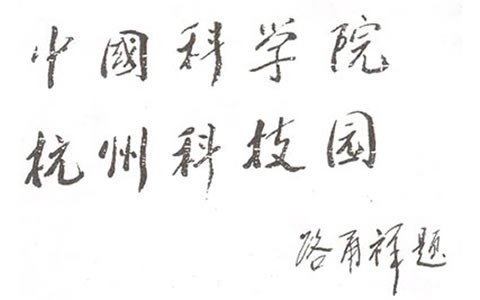 中國科学院
杭州科技园
路甬祥题